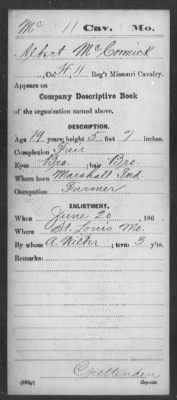 Mc 11 Cav. Mo.
Albert McCormick
, Co. H, 11 Reg't Missouri Cavalry.
Appears on
Company Descriptive Book
of the organization named above.
DESCRIPTION.
Age 19 years; height 5 feet 7 inches.
Complexion Fair
Eyes Bro.; hair Bro.
Where born Marshall Ind.
Occupation Farmer
ENLISTMENT.
When June 20, 186 .
Where St. Louis Mo.
By whom A. ; term 3 y'rs.
Remarks:
Crittenden
Copyist.